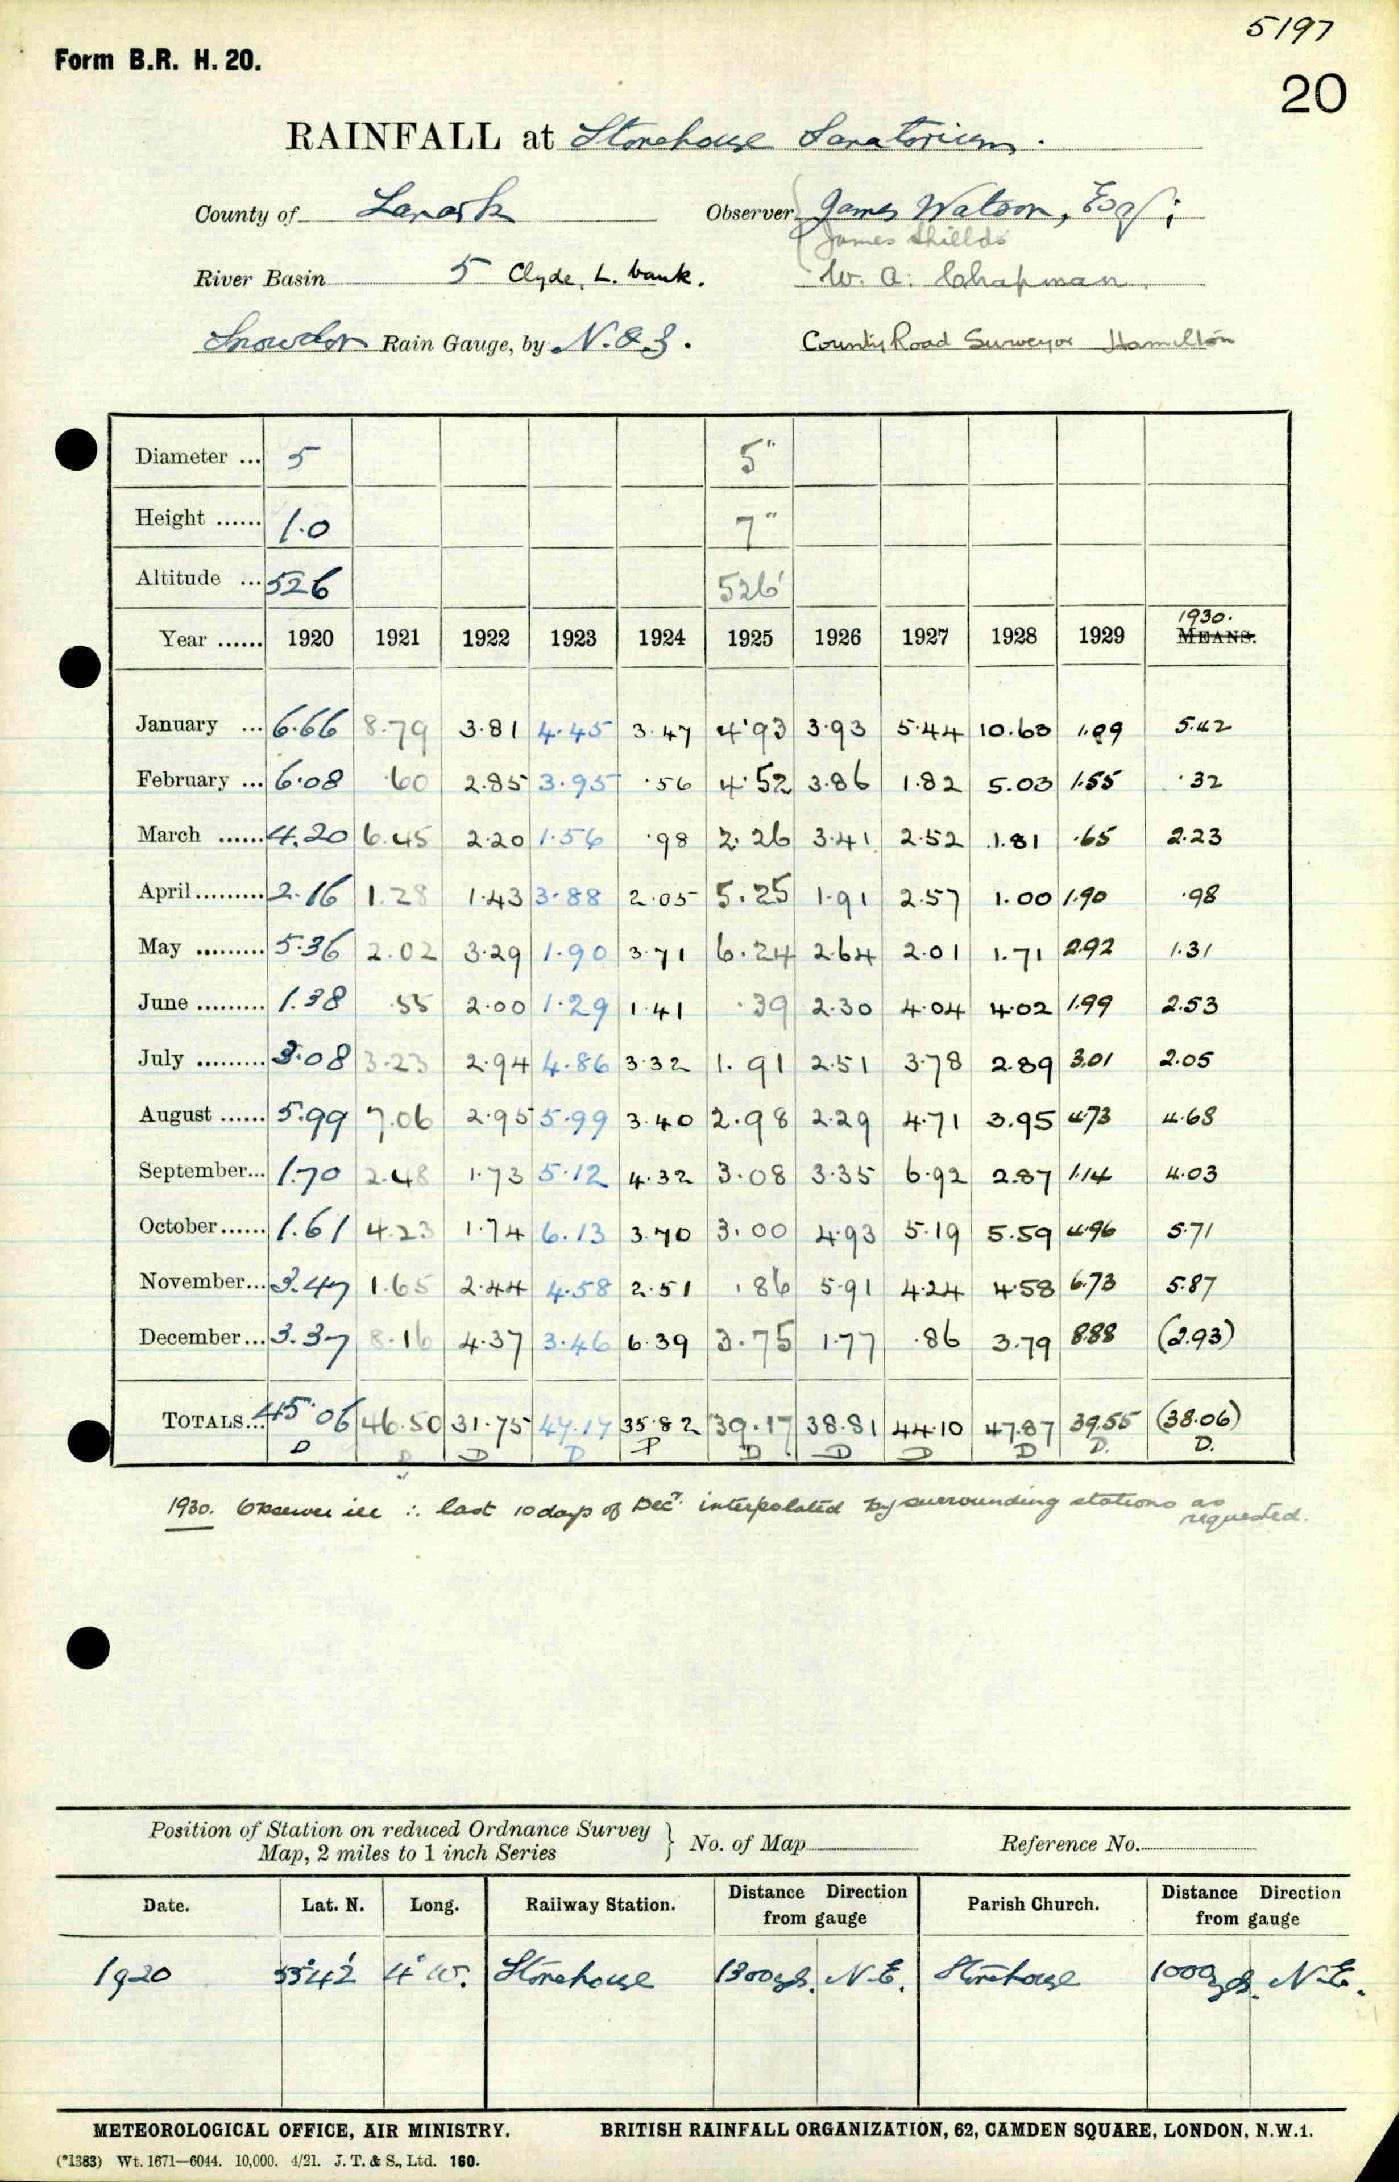 5197
Form B.R. H. 20.
20
RAINFALL at Stonehouse Sanatorium.
County of Lanark Observer James Watson, Esq;
James Shields
River Basin 5 Clyde, L. bank. W. A. Chapman.
Snowdon Rain Gauge, by N. & Z. County Road Surveyor Hamilton
Diameter ... 5 5"
Height ...... 1.0 7"
Altitude ... 526 526'
1930.
Year ...... 1920 1921 1922 1923 1924 1925 1926 1927 1928 1929 MEANS.
January ... 6.66 8.79 3.81 4.45 3.47 4.93 3.93 5.44 10.63 1.09 5.42
February ... 6.08 .60 2.85 3.95 .56 4.52 3.86 1.82 5.03 1.55 .32
March ...... 4.20 6.45 2.20 1.56 .98 2.26 3.41 2.52 1.81 .65 2.23
April ......... 2.16 1.28 1.43 3.88 2.05 5.25 1.91 2.57 1.00 1.90 .98
May ......... 5.36 2.02 3.29 1.90 3.71 6.24 2.64 2.01 1.71 2.92 1.31
June ......... 1.38 .55 2.00 1.29 1.41 .39 2.30 4.04 4.02 1.99 2.53
July ......... 3.08 3.23 2.94 4.86 3.32 1.91 2.51 3.78 2.89 3.01 2.05
August ...... 5.99 7.06 2.95 5.99 3.40 2.98 2.29 4.71 3.95 4.73 4.68
September... 1.70 2.48 1.73 5.12 4.32 3.08 3.35 6.92 2.87 1.14 4.03
October...... 1.61 4.23 1.74 6.13 3.70 3.00 4.93 5.19 5.59 4.96 5.71
November... 3.47 1.65 2.44 4.58 2.51 .86 5.91 4.24 4.58 6.73 5.87
December... 3.37 8.16 4.37 3.46 6.39 3.75 1.77 .86 3.79 8.88 (2.93)
TOTALS... 45.06 46.50 31.75 47.17 35.82 39.17 38.81 44.10 47.87 39.55 (38.06)
D D D D P D D D D D. D.
1930. Observer ill ∴ last 10 days of Decr. interpolated by surrounding stations as
requested.
Position of Station on reduced Ordnance Survey
Map, 2 miles to 1 inch Series } No. of Map Reference No.
Date. Lat. N. Long. Railway Station. Distance Direction from gauge Parish Church. Distance Direction from gauge
1920 55°42' 4° W. Stonehouse 1300 yds. N.E. Stonehouse 1000 yds. N.E.
METEOROLOGICAL OFFICE, AIR MINISTRY. BRITISH RAINFALL ORGANIZATION, 62, CAMDEN SQUARE, LONDON, N.W.1.
(*1383) Wt. 1671—6044. 10,000. 4/21. J. T. & S., Ltd. 160.